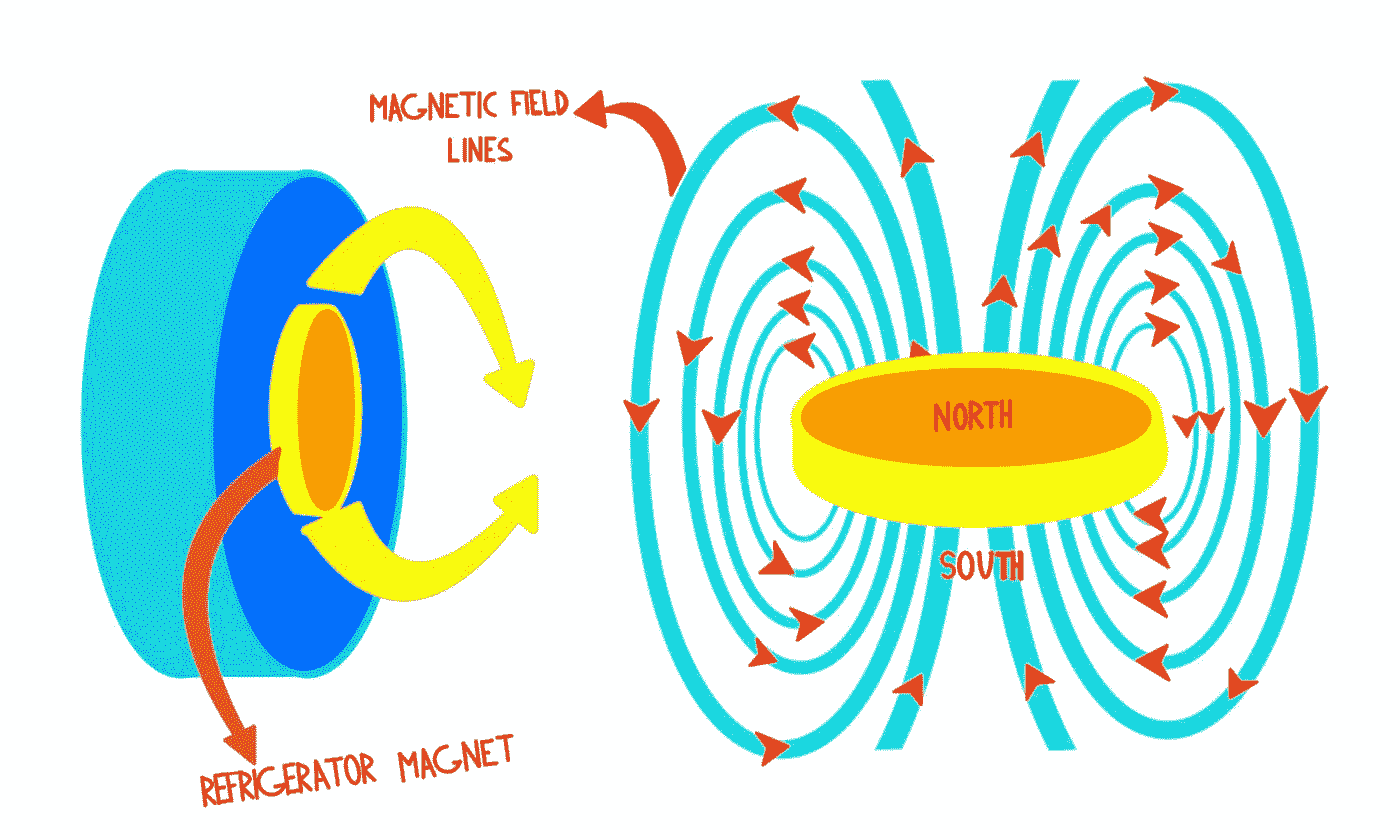 MAGNETIC FIELD
LINES
NORTH
SOUTH
REFRIGERATOR MAGNET